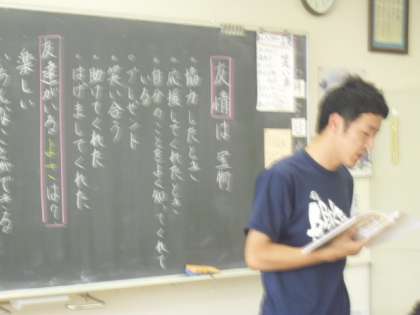 友情は宝物
・協力したとき
・応援してくれたとき
・自分のことをよく知ってくれて
いる
・プレゼント
・笑い合う
・助けてくれた
・はげましてくれた
友達がいるよさは？
楽しい